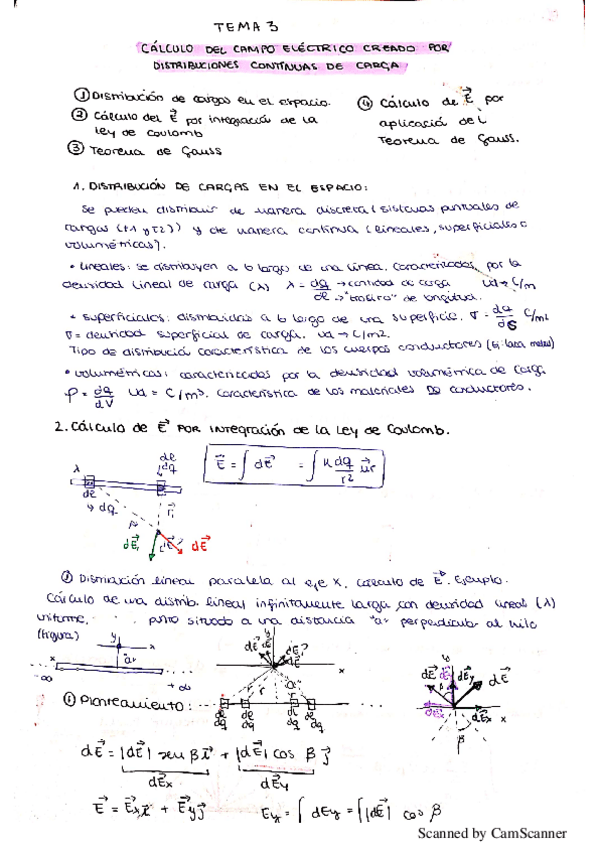 TEMA 3
CÁLCULO DEL CAMPO ELÉCTRICO CREADO POR
DISTRIBUCIONES CONTÍNUAS DE CARGA
① Distribución de cargas en el espacio.
② Cálculo del E⃗ por integración de la
ley de Coulomb
③ Teorema de Gauss
④ Cálculo de E⃗ por
aplicación del
Teorema de Gauss.
1. DISTRIBUCIÓN DE CARGAS EN EL ESPACIO:
Se pueden distribuir de manera discreta (sistemas puntuales de
cargas (t1 y T2)) y de manera continua (lineales, superficiales o
volumétricas).
• Lineales: se distribuyen a lo largo de una línea. Caracterizadas por la
densidad lineal de carga (λ) λ = dq/dl → cantidad de carga ud → C/m
→ "trocito" de longitud.
• superficiales: distribuidas a lo largo de una superficie. σ = dq/dS C/m2
σ = densidad superficial de carga. ud → C/m2.
Tipo de distribució característica de los cuerpos conductores (Ej: metal)
• volumétricas: caracterizadas por la densidad volumétrica de carga
ρ = dq/dV Ud = C/m³. Característica de los materiales NO conductores.
2. Cálculo de E⃗ POR INTEGRACIÓN de la Ley de Coulomb.
E⃗ = ∫ dE⃗ = ∫ k dq/r² u⃗r
λ
dl
dq
dl
↳ dq
r⃗₁
dE⃗₁
dE⃗
① Distribución lineal paralela al eje X. Cálculo de E⃗. Ejemplo.
Cálculo de una distrib. lineal infinitamente larga con densidad lineal (λ)
uniforme, punto situado a una distancia "a" perpendicular al hilo
(figura)
y
"a"
x
-∞
+∞
① Planteamiento:
y
dE⃗
x
r
dl dq
dl dq
dl dq
dl dq
y
dE⃗
dE⃗y
dE⃗
dE⃗x
x
β
dE⃗ = |dE⃗| sen β i⃗ + |dE⃗| cos β j⃗
dE⃗x
dE⃗y
E⃗ = E⃗x i⃗ + E⃗y j⃗
Ey = ∫ dEy = ∫ |dE⃗| cos β
Scanned by CamScanner